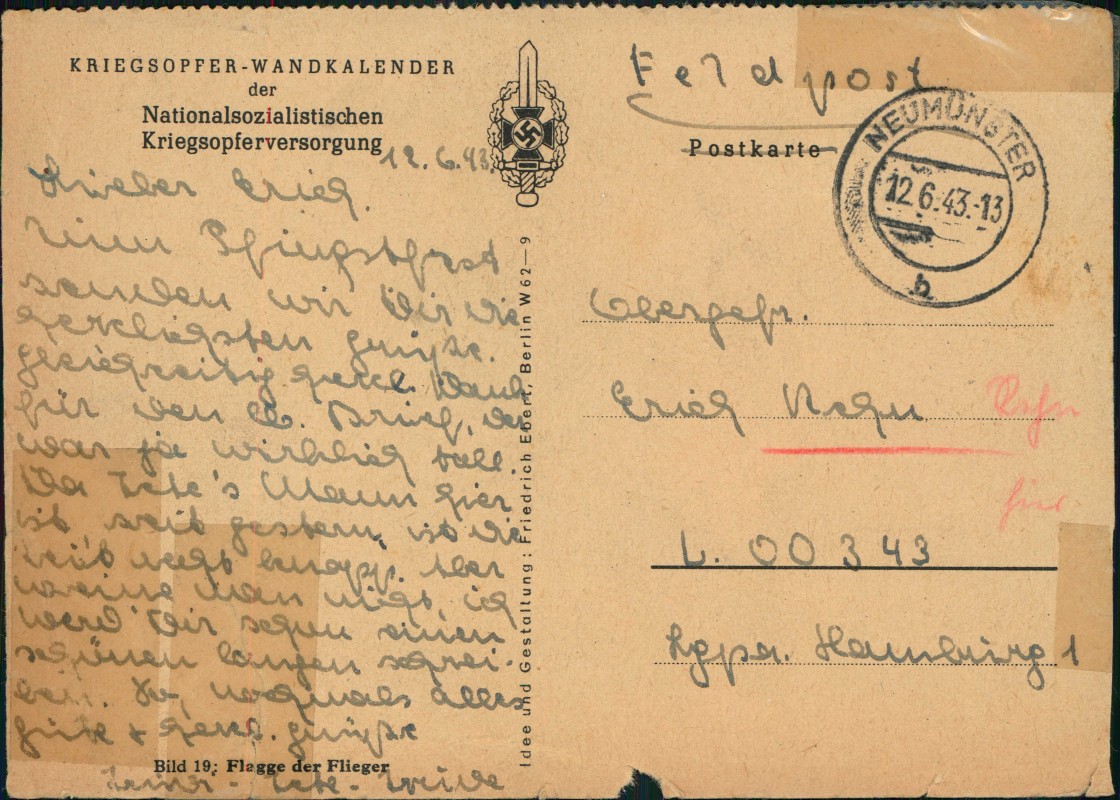 KRIEGSOPFER-WANDKALENDER
der
Nationalsozialistischen
Kriegsopferversorgung
12.6.43.
Lieber Erich.
Zum Pfingstfest
senden wir Dir die
herzlichsten Grüße.
Gleichzeitig herzl. Dank
für den lb. Brief, der
war ja wirklich toll.
Da Tete's Mann hier
ist seit gestern, ist die
Zeit recht knapp. Aber
weine man nicht, ich
werd Dir schon einen
schönen langen schrei-
ben. So, nochmals alles
gute + herzl. Grüße
Bild 19: Flagge der Flieger
Idee und Gestaltung: Friedrich Ebert, Berlin W 62—9
Feldpost
Postkarte
NEUMÜNSTER
12.6.43.-13
b
Obergefr.
Erich
hier
L. 00343
Lgpa. Hamburg 1